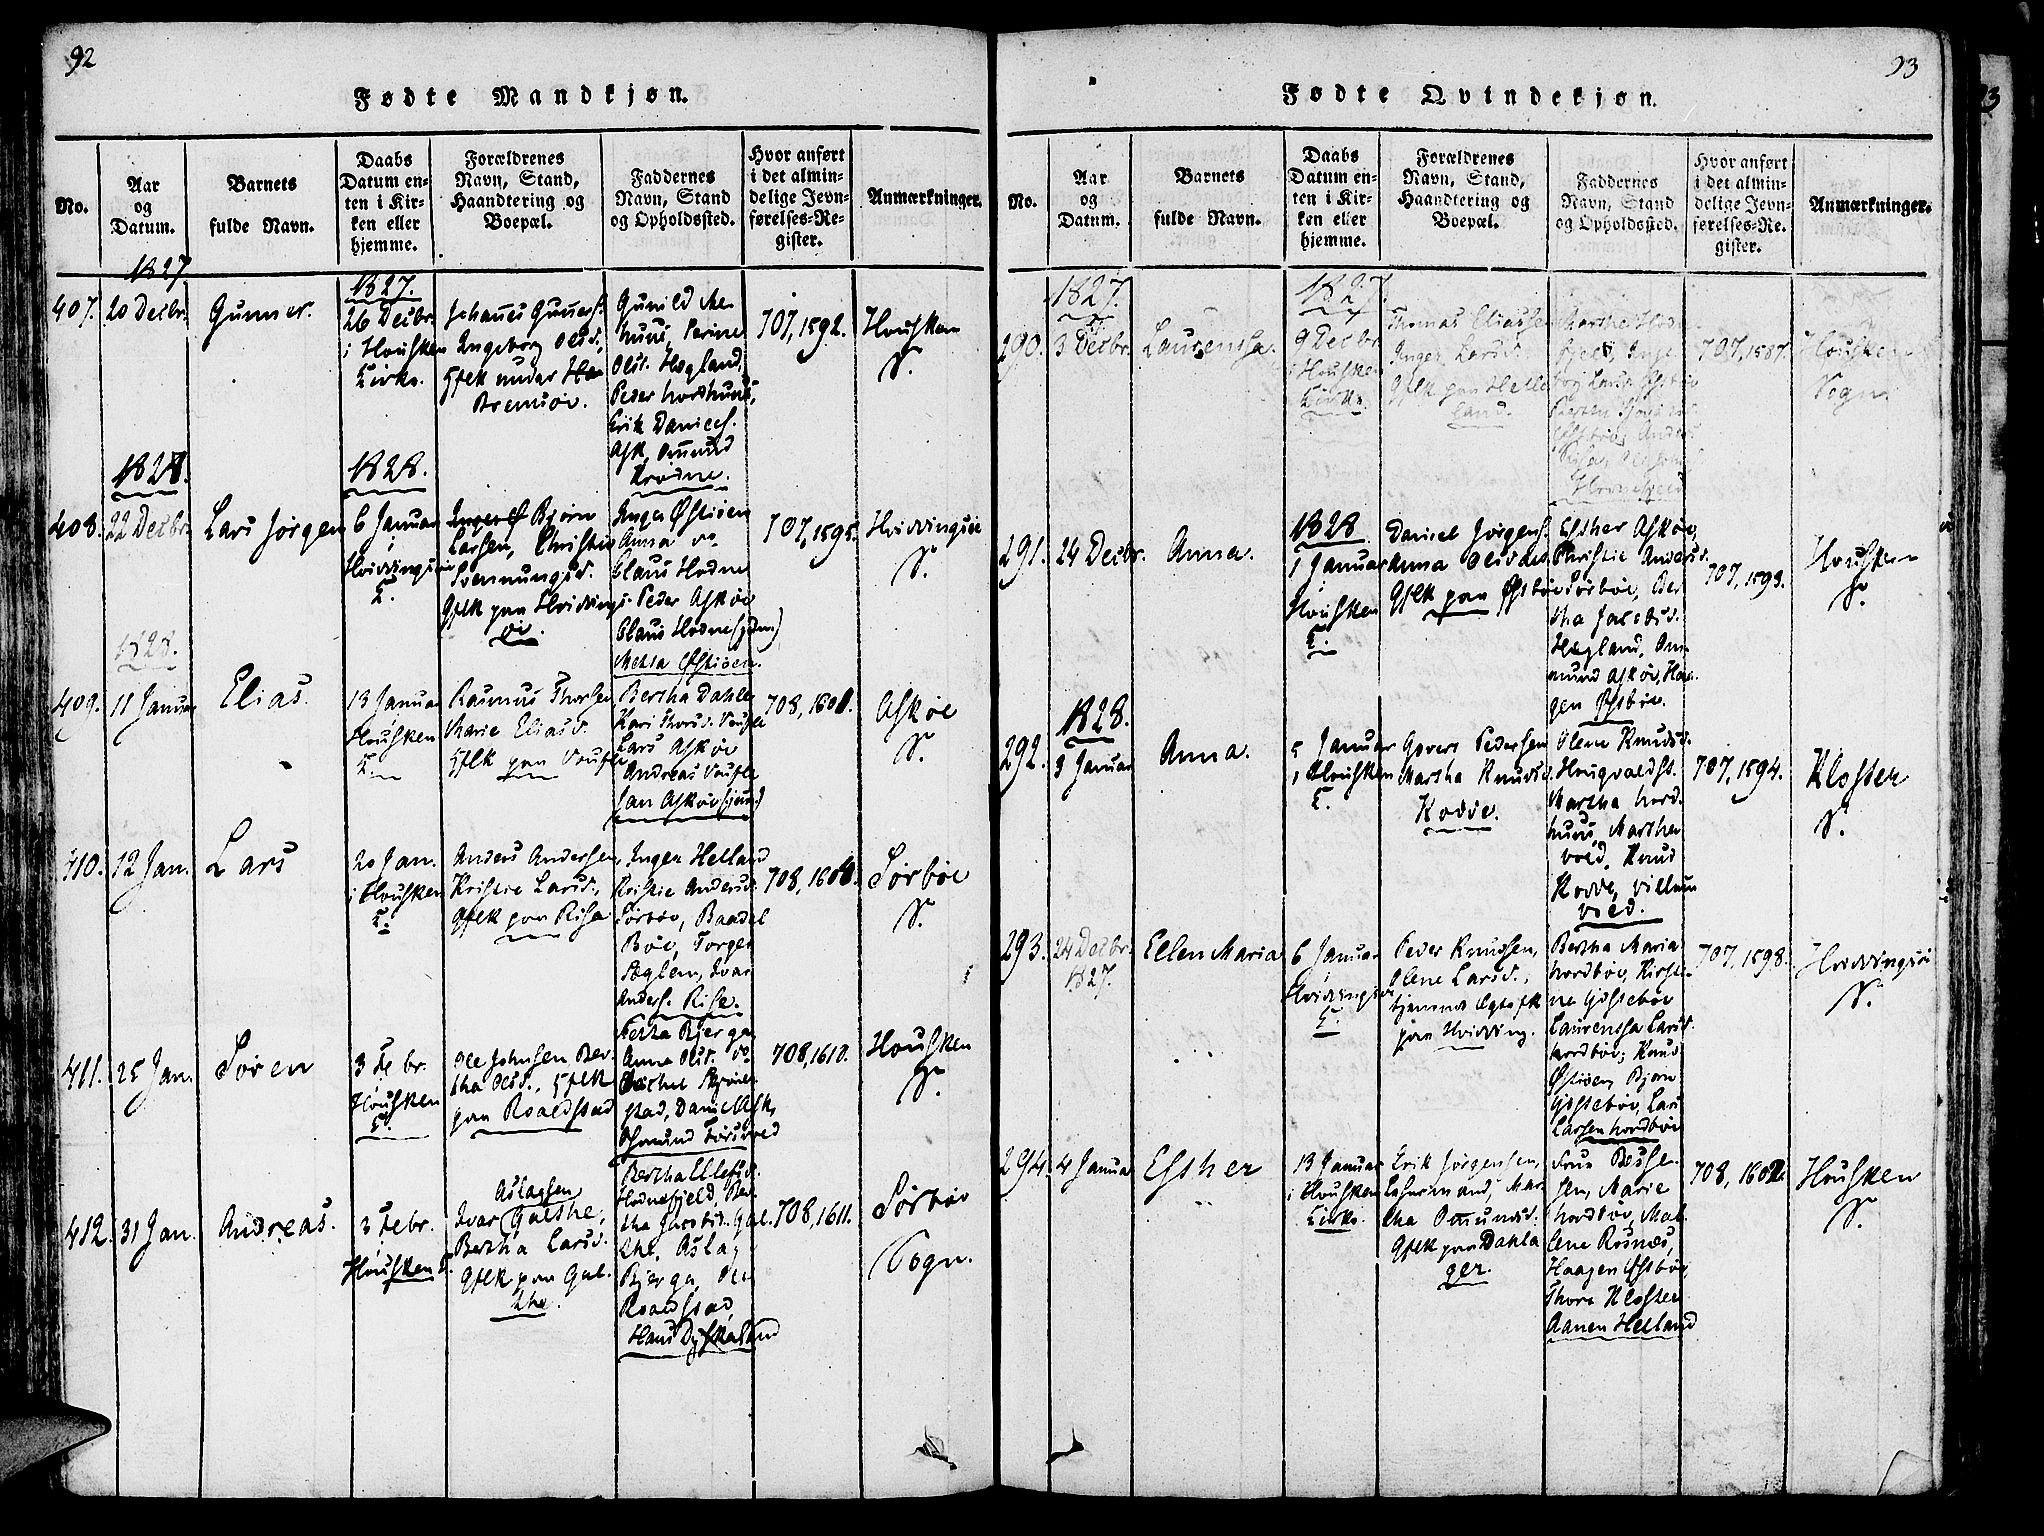 92
Fødte Mandkjøn.
No.
Aar
og
Datum.
Barnets
fulde Navn.
Daabs
Datum en-
ten i Kir-
ken eller
hjemme.
Forældrenes
Navn, Stand,
Haandtering og
Boepæl.
Faddernes
Navn, Stand
og Opholdssted.
Hvor anført
i det almin-
delige Jevn-
førelses-Re-
gister.
Anmærkninger.
1827
407.
20 Decbr.
Gunner.
1827.
26 Decbr.
i Housken
Kirke.
Johanes
Ingeborg Olsd.,
Bremsøe.
Gunild
Perine
Olsd. Høgland,
Peder Nordhuus,
Erik Daniels.
Ask, Omund
Krodne.
707, 1592.
Housken
S.
1828.
408.
22 Decbr.
Lars Jørgen
1828.
6 Januar
i
Hvidingsøe
K.
Bjørn
Larsen, Christie
Svennungsd.
Gflk paa Hvidings-
øe.
Inger Østiøen
Anna do
Claus Hodne
Peder Askøe
Claus Hodne (jun.)
Metha Østiøen.
707, 1595.
Hvidingsøe
S.
1828.
409.
11 Januar
Elias.
13 Januar
Housken
K.
Rasmus Thorsen
Marie Eliasd.
Gflk paa
Bertha Dahle
Kari Thorsd.
Lars Askøe
Andreas
Jan Askøe (jun.)
708, 1601.
Askøe
S.
410.
12 Jan.
Lars
20 Jan.
i Housken
K.
Anders Andersen,
Kristie Larsd.,
Gflk paa Rise
Inger Helland
Kristie Andersd.
Sørbøe, Baadel
Bøe, Torger
Søglem, Ivar
Anders. Rise.
708, 1606.
Sørbøe
S.
411.
25 Jan.
Søren
3 Febr.
Housken
K.
Ole Johnsen Ber-
tha Olsd., Gflk
paa Roaldstad
Bjerga
Anna Olsd. do
Rachel
stad, Daniel Ask,
Osmund Førsvoed
708, 1610.
Housken
S.
412.
31 Jan.
Andreas.
3 Febr.
Housken K.
Aslagsen
Ivar Galthe,
Bertha Larsd.
Gflk paa Gal-
the.
Bertha
Hodnefjeld, Ber-
tha Jacobsd. Gal-
the, Aslag
Bjerga, Ole
Roaldstad,
Hans Dyskeland
708, 1611.
Sørbøe
Sogn.
93
Fødte Qvindekjøn.
No.
Aar
og
Datum.
Barnets
fulde Navn.
Daabs
Datum en-
ten i Kir-
ken eller
hjemme.
Forældrenes
Navn, Stand,
Haandtering og
Boepæl.
Faddernes
Navn, Stand
og Opholdssted.
Hvor anført
i det almin-
delige Jevn-
førelses-Re-
gister.
Anmærkninger.
1827.
290.
3 Decbr.
Laurensa.
1827.
9 Decbr.
i Housken
Kirke.
Thomas Eliassen
Inger Larsd.
Gflk paa Helle-
land.
Marthe Hodne-
fjeld, Inge-
borg
707, 1587.
Housken
Sogn.
291.
24 Decbr.
Anna.
1828
1 Januar
Housken
K.
Daniel Jørgens.
Anna
Gflk paa Østbøe
Esther Askøe,
Christie Andersd.
Sørbøe, Ber-
tha Jacobsd.
Høgland, Om-
mund Askøe, Haa-
gen Østbøe.
707, 1593.
Housken
S.
1828.
292.
3 Januar
Anna.
5 Januar
i Housken
K.
Govert Pedersen
Martha Knudsd.
Kodde.
Olene Knudsd.
Hougvaldst.
Martha Nord-
huus, Marthe
Voed, Knud
Kodde, Villum
Voed.
707, 1594.
Kloster
S.
293.
24 Decbr.
1827.
Ellen Maria
6 Januar
i
Hvidingsøe
K.
Peder Knudsen,
Olene Larsd.,
tjenende Egtefk
paa Hvidding.
Bertha Maria
Nordbøe, Kirsti-
ne Gjøstebøe
Laurensa Larsd.
Nordbøe, Knud
Østiøen, Bjørn
Gjøstebøe, Lars
Larsen Nordbøe
707, 1598.
Hvidingsøe
S.
294.
4 Januar
Esther
13 Januar
i Housken
Kirke.
Erik Jørgensen,
Lehnsmand, Mar-
tha Omundsd.
Gflk paa Dahla-
ger.
Frue
sen, Marie
Nordbøe, Mal-
lene Rosnæs,
Haagen Østbøe,
Thore Kloster
Aanen Helland
708, 1602.
Housken
S.